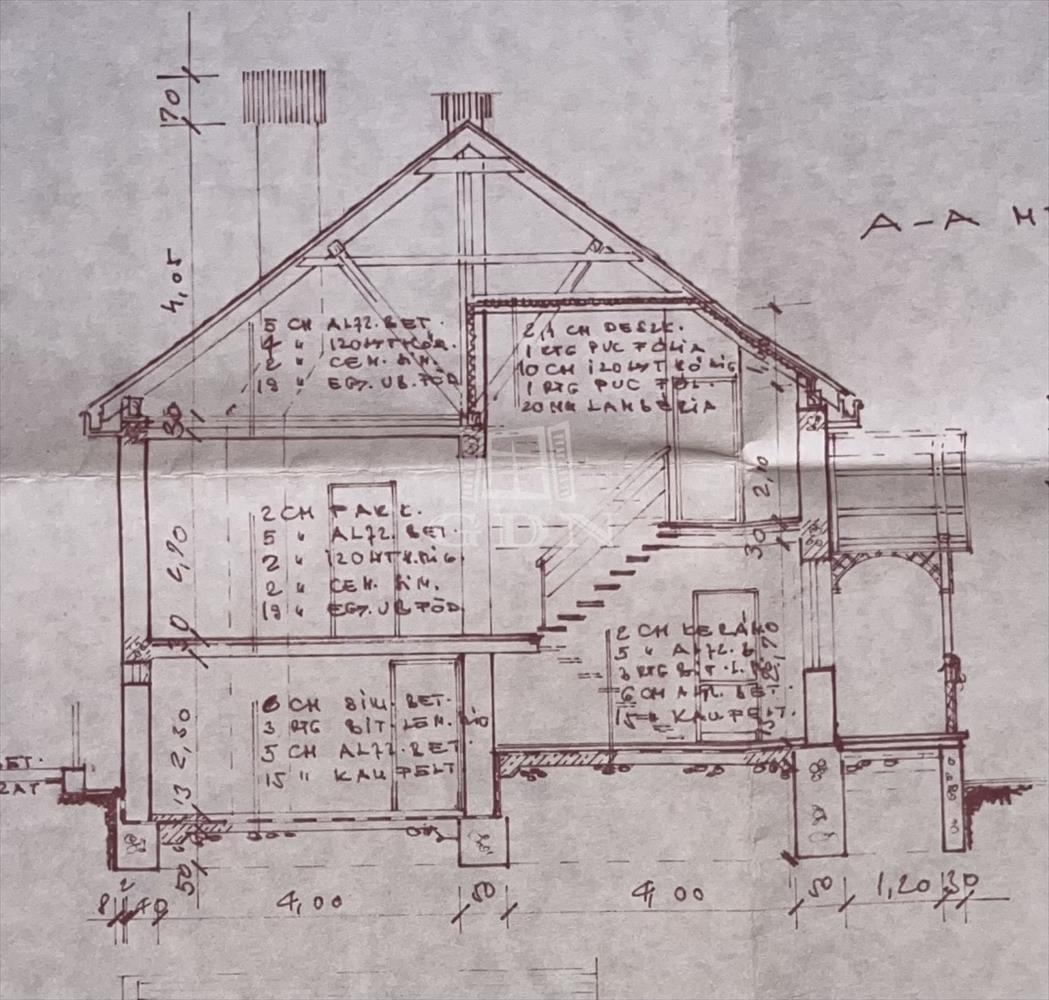 70
A-A M
4,05
5 CM ALJZ. BET.
4 "
2 " CEM. SIM.
19 " EGY. UB. FÖD
2,4 CM DESZK.
1 RTG PVC FÓLIA
10 CM IZOLYT KŐ
1 RTG PVC FÓL.
20 MM LAMBÉRIA
30
2,10
GDN
2 CM PARK.
5 " ALJZ. BET.
2 "
2 " CEM. SIM.
19 " EGY. UB. FÖD
30
30
2 CM KERÁM
5 " ALJZ. B
3 RTG BIT. L.
6 CM ALJZ. BET.
15 " KAV FELT.
6 CM SIM. BET.
3 RTG BIT. LEM.
5 CM ALJZ. BET.
15 " KAV FELT
2,30
13
BET.
ZAT
50
8 2 40 4,00 50 4,00 50 1,20 30